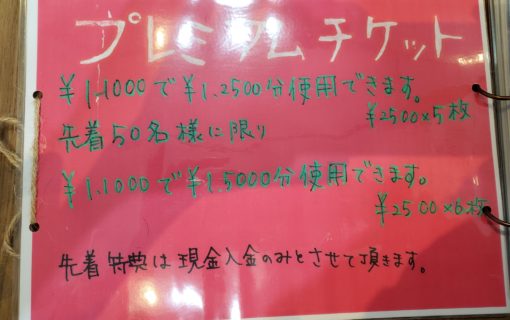 プレミアムチケット
¥1.1000で¥1.2500分使用できます。
¥2500×5枚
先着50名様に限り
¥1.1000で¥1.5000分使用できます。
¥2500×6枚
先着特典は現金入金のみとさせて頂きます。